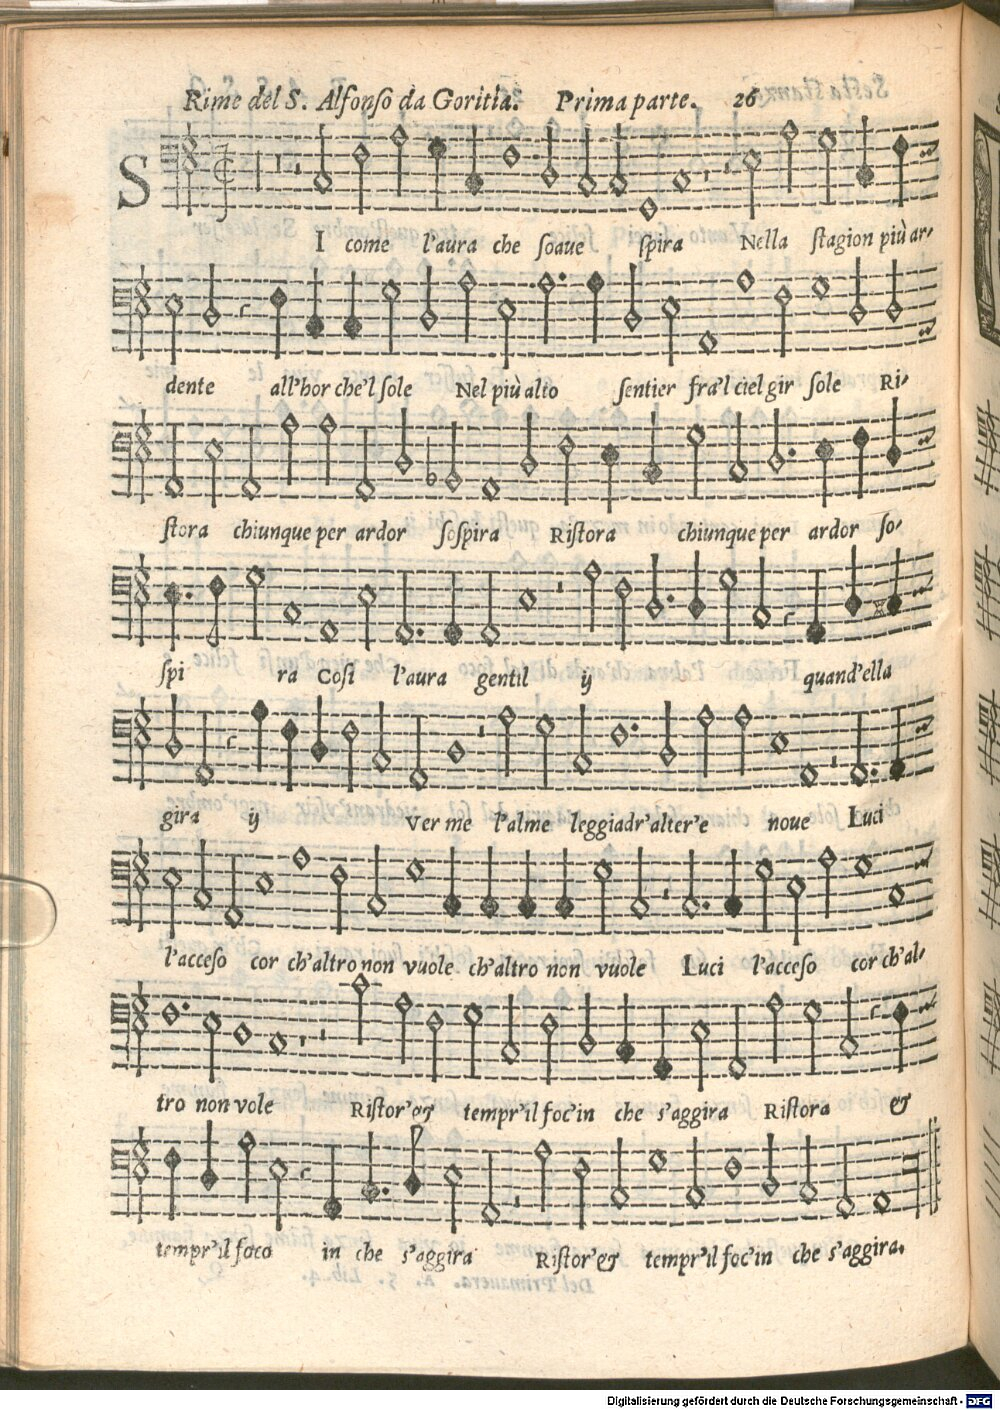 Rime del S. Alfonſo da Goritia. Prima parte. 26
S
I come l'aura che ſoaue ſpira Nella ſtagion più ar-
dente all'hor che'l ſole Nel più alto ſentier fra'l ciel gir ſole Ri-
ſtora chiunque per ardor ſoſpira Riſtora chiunque per ardor ſo-
ſpi ra Coſi l'aura gentil ij quand'ella
gira ij Ver me l'alme leggiadr'alter'e noue Luci
l'acceſo cor ch'altro non vuole ch'altro non vuole Luci l'acceſo cor ch'al-
tro non vole Riſtor'& tempr'il foc'in che s'aggira Riſtora &
tempr'il foco in che s'aggira Riſtor'& tempr'il foc'in che s'aggira.
Del Primauera. A. 5. Lib. 4.
Digitalisierung gefördert durch die Deutsche Forschungsgemeinschaft - DFG